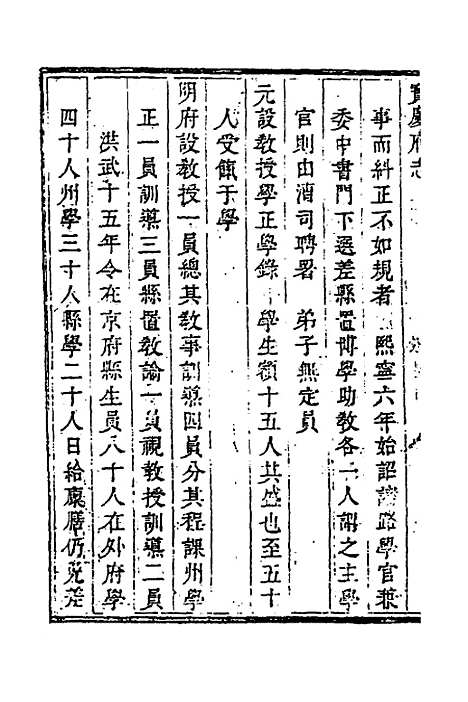 寶慶府志
事而糾正不如規者 熙寧六年始詔諸路學官兼
委中書門下選差縣置博學助教各一人謂之主學
官則由漕司聘署 弟子無定員
元設教授學正學錄 學生額十五人共盛也至五十
人受餼于學
明府設教授一員總其教事訓導四員分其程課州學
正一員訓導三員縣置教諭一員視教授訓導二員
洪武十五年令在京府縣生員八十人在外府學
四十人州學三十人縣學二十人日給廩膳仍免差